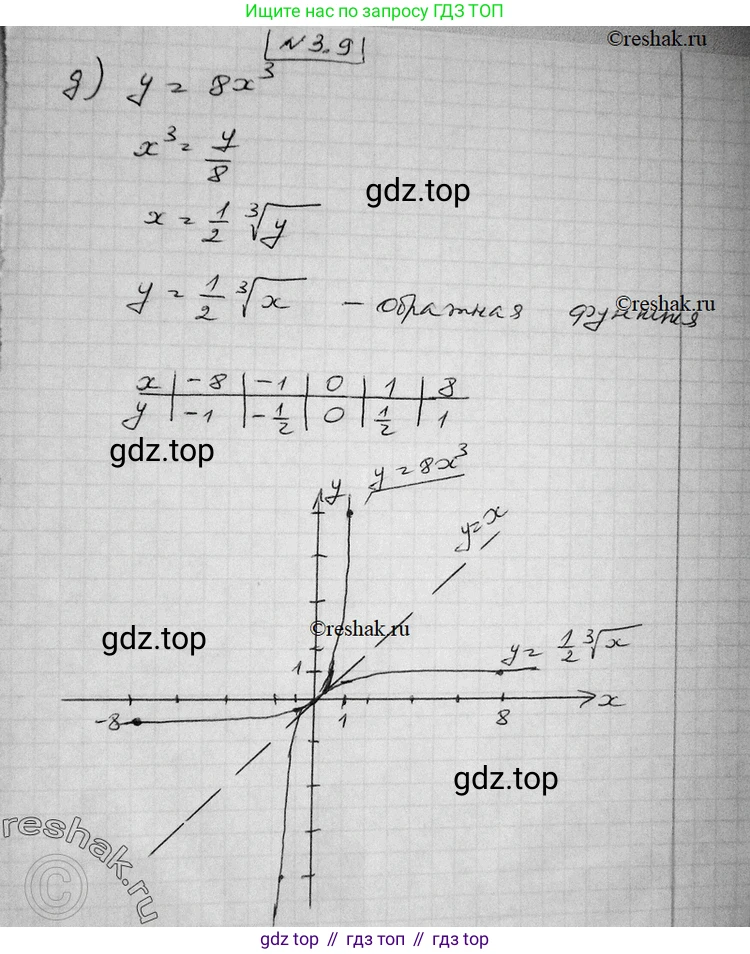 Ищите нас по запросу ГДЗ ТОП
№3.9
©reshak.ru
д) y = 8x³
x³ = y/8
gdz.top
x = 1/2 ∛y
y = 1/2 ∛x – обратная функция
©reshak.ru
x | -8 | -1 | 0 | 1 | 8
y | -1 | -1/2 | 0 | 1/2 | 1
gdz.top
y = 8x³
y
y=x
©reshak.ru
gdz.top
y = 1/2 ∛x
1
-8
1
8
x
gdz.top
reshak.ru
©
gdz top // гдз топ // gdz top